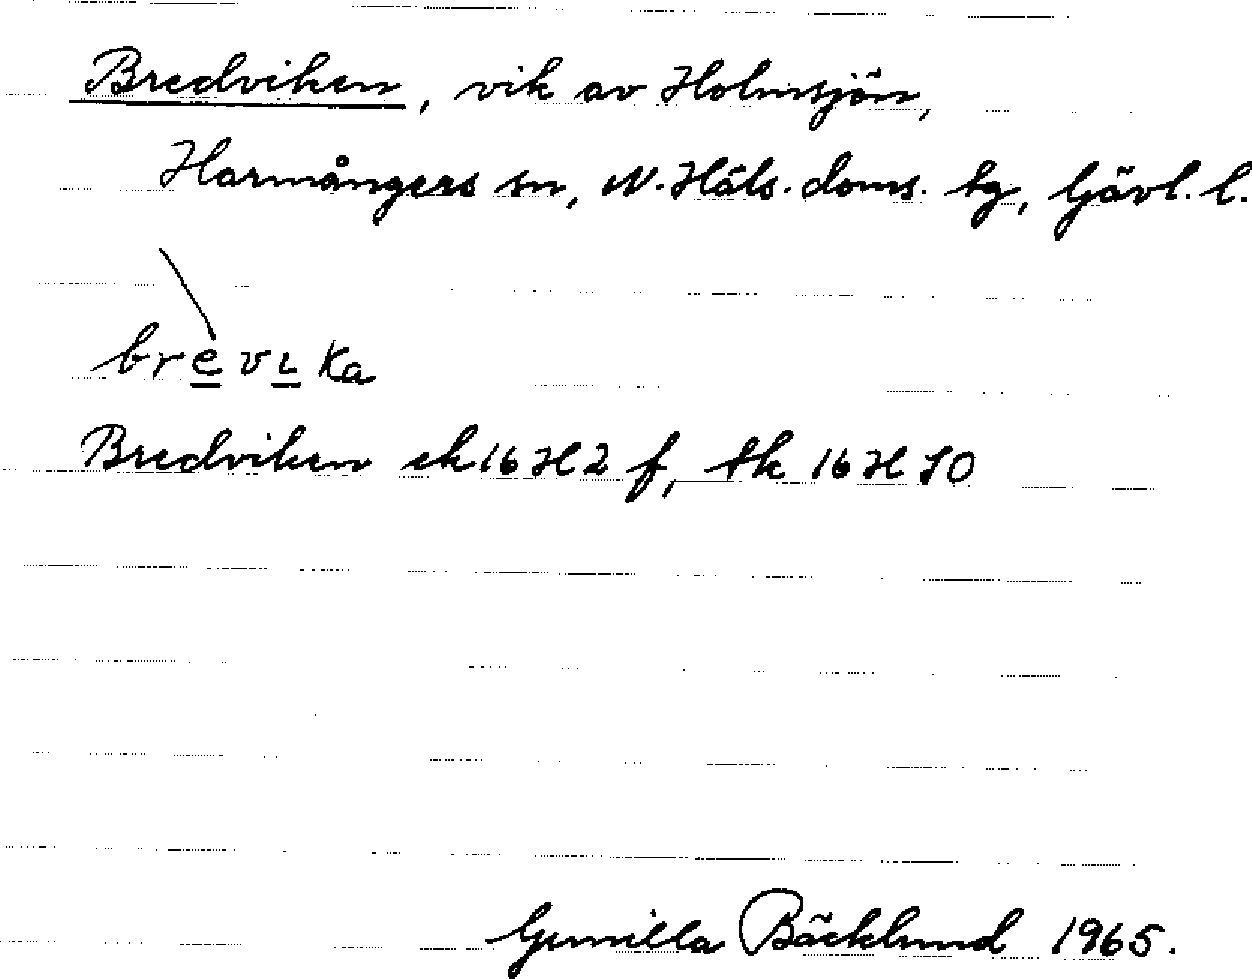 Bredviken, vik av Holmsjön,
Harmångers sn, N. Häls. doms. tg, Gävl. l.
brevɩka
Bredviken ek 16 H 2 f, tk 16 H SO
Gunilla Bäcklund 1965.